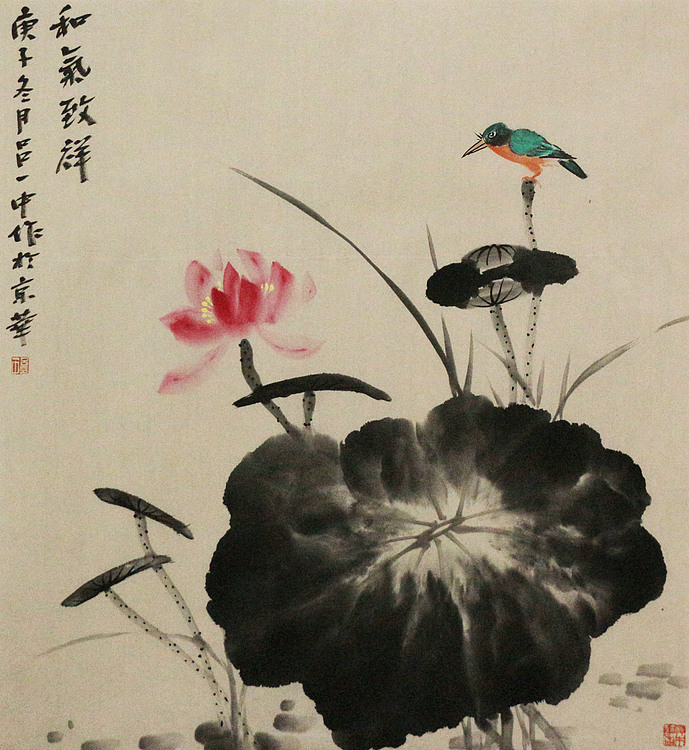 和氣致祥
庚子冬月吕一中作於京華